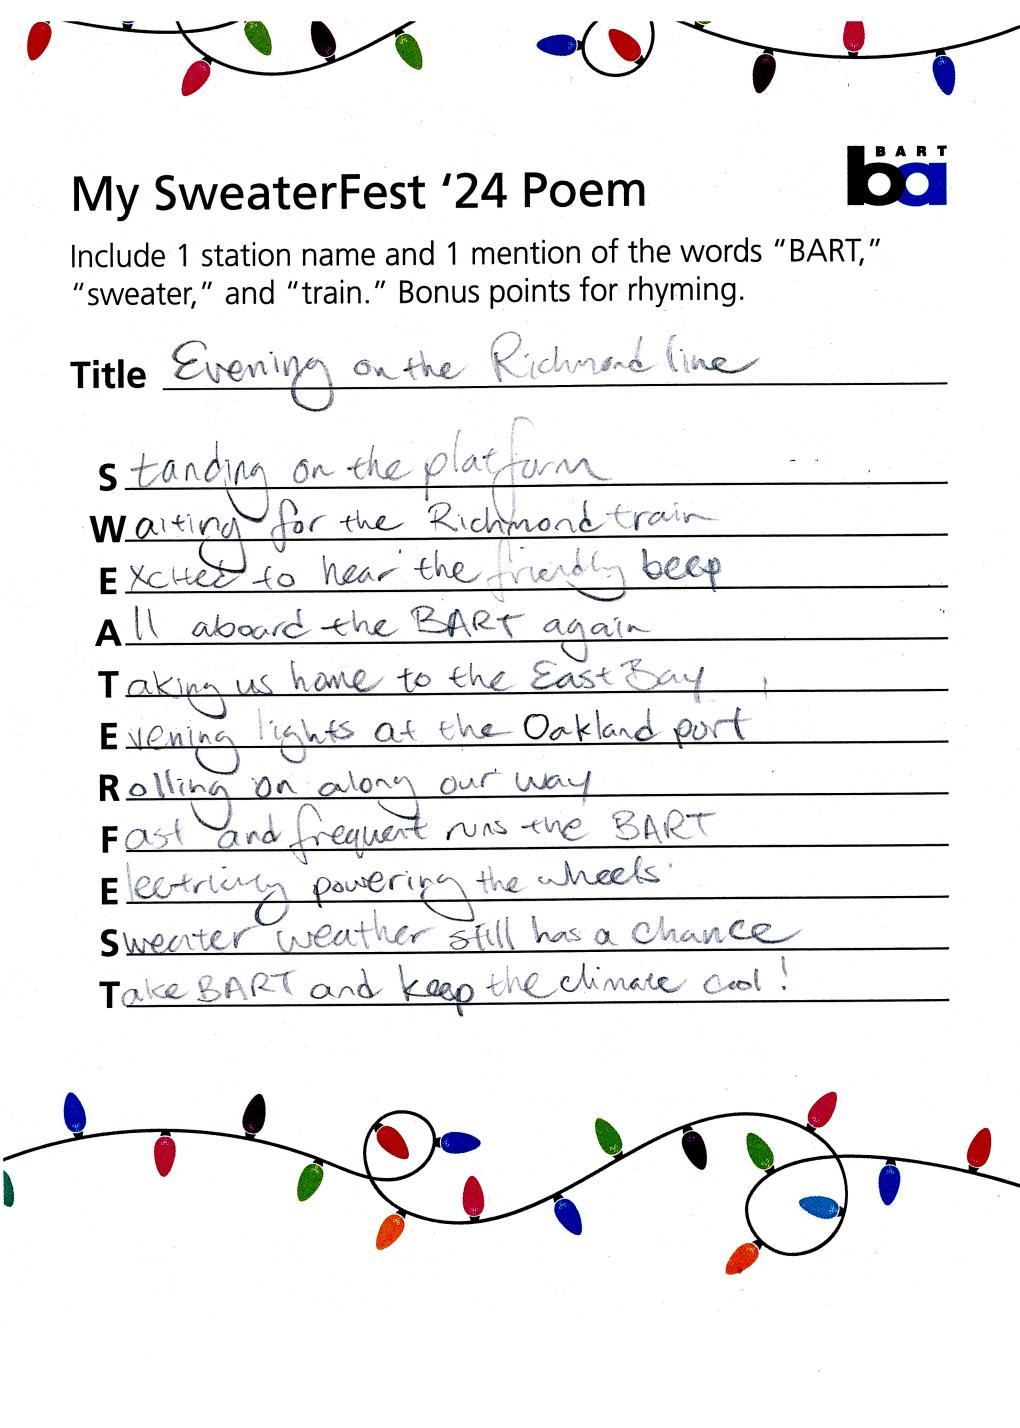 BART
ba
My SweaterFest ‘24 Poem
Include 1 station name and 1 mention of the words “BART,”
“sweater,” and “train.” Bonus points for rhyming.
Title Evening on the Richmond line
Standing on the platform
Waiting for the Richmond train
Excited to hear the friendly beep
All aboard the BART again
Taking us home to the East Bay
Evening lights at the Oakland port
Rolling on along our way
Fast and frequent runs the BART
Electricity powering the wheels
Sweater weather still has a chance
Take BART and keep the climate cool!